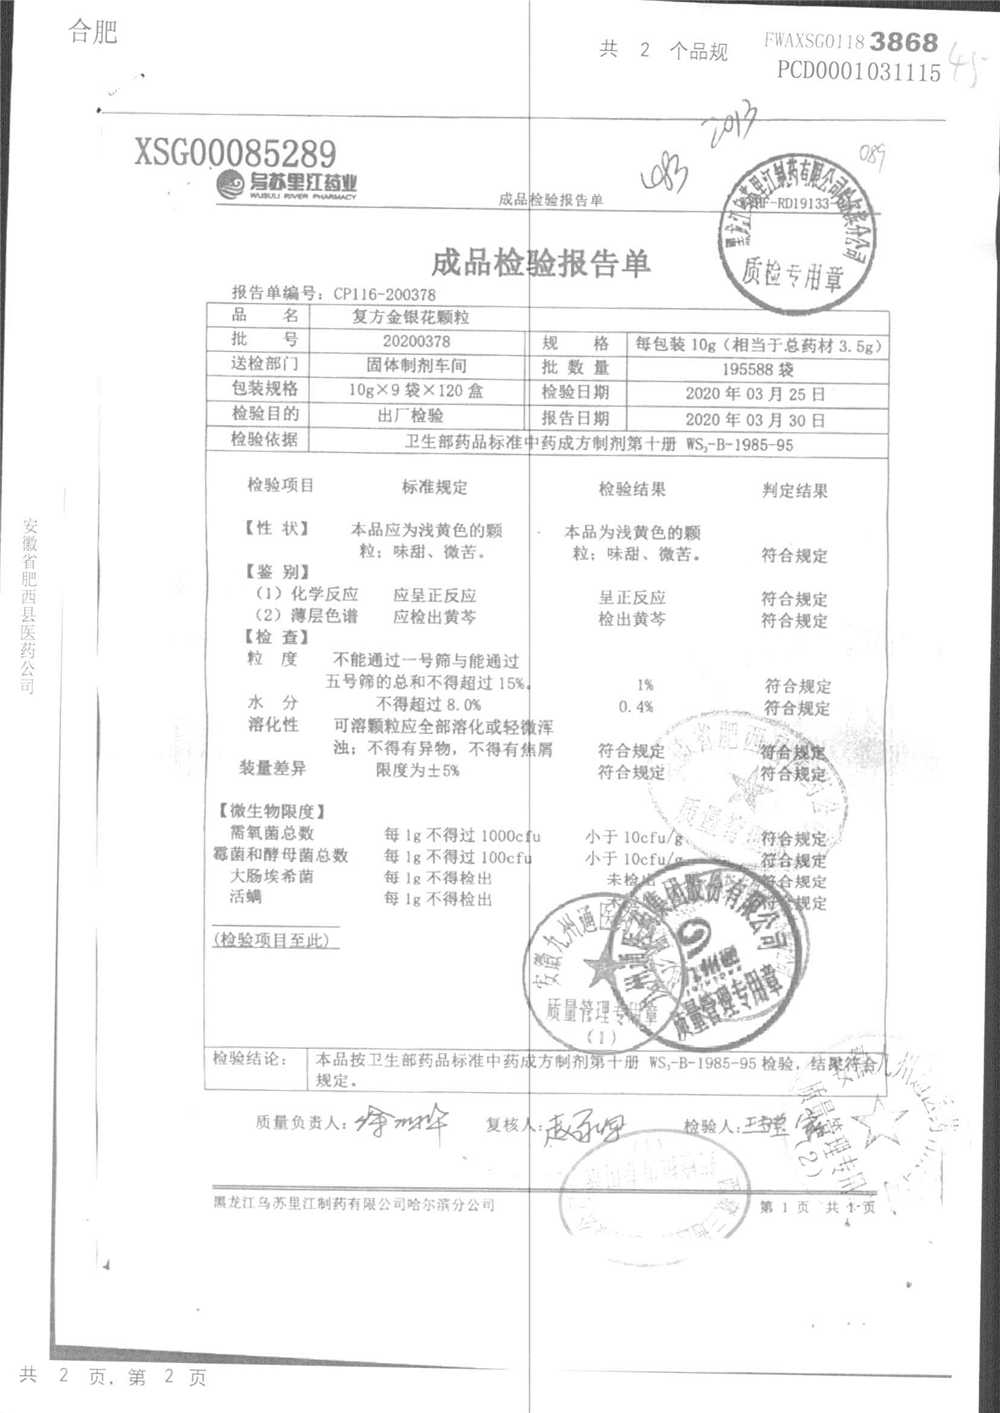 合肥
共 2 个品规
FWAXSG01183868
PCD0001031115
45
XSG00085289
乌苏里江药业
WUSULI RIVER PHARMACY
成品检验报告单
083
2013
089
RD19133
质检专用章
成品检验报告单
报告单编号: CP116-200378
品 名 复方金银花颗粒
批 号 20200378 规 格 每包装 10g (相当于总药材 3.5g)
送检部门 固体制剂车间 批 数 量 195588 袋
包装规格 10g×9 袋×120 盒 检验日期 2020 年 03 月 25 日
检验目的 出厂检验 报告日期 2020 年 03 月 30 日
检验依据 卫生部药品标准中药成方制剂第十册 WS₃-B-1985-95
检验项目 标准规定 检验结果 判定结果
【性 状】 本品应为浅黄色的颗 本品为浅黄色的颗
粒；味甜、微苦。 粒；味甜、微苦。 符合规定
【鉴 别】
(1) 化学反应 应呈正反应 呈正反应 符合规定
(2) 薄层色谱 应检出黄芩 检出黄芩 符合规定
【检 查】
粒 度 不能通过一号筛与能通过
五号筛的总和不得超过 15%。 1% 符合规定
水 分 不得超过 8.0% 0.4% 符合规定
溶化性 可溶颗粒应全部溶化或轻微浑
浊；不得有异物，不得有焦屑 符合规定 符合规定
装量差异 限度为±5% 符合规定 符合规定
【微生物限度】
需氧菌总数 每 1g 不得过 1000cfu 小于 10cfu/g 符合规定
霉菌和酵母菌总数 每 1g 不得过 100cfu 小于 10cfu/g 符合规定
大肠埃希菌 每 1g 不得检出 未检出 符合规定
活螨 每 1g 不得检出 符合规定
(检验项目至此)
安徽九州通医
质量管理专用章
(1)
集团股份有限公司
九州通
质量管理专用章
检验结论: 本品按卫生部药品标准中药成方制剂第十册 WS₃-B-1985-95 检验，结果符合
规定。
质量负责人: 复核人: 检验人:
质量管理专用
(2)
黑龙江乌苏里江制药有限公司哈尔滨分公司
第 1 页 共 1 页
安徽省肥西县医药公司
共 2 页, 第 2 页